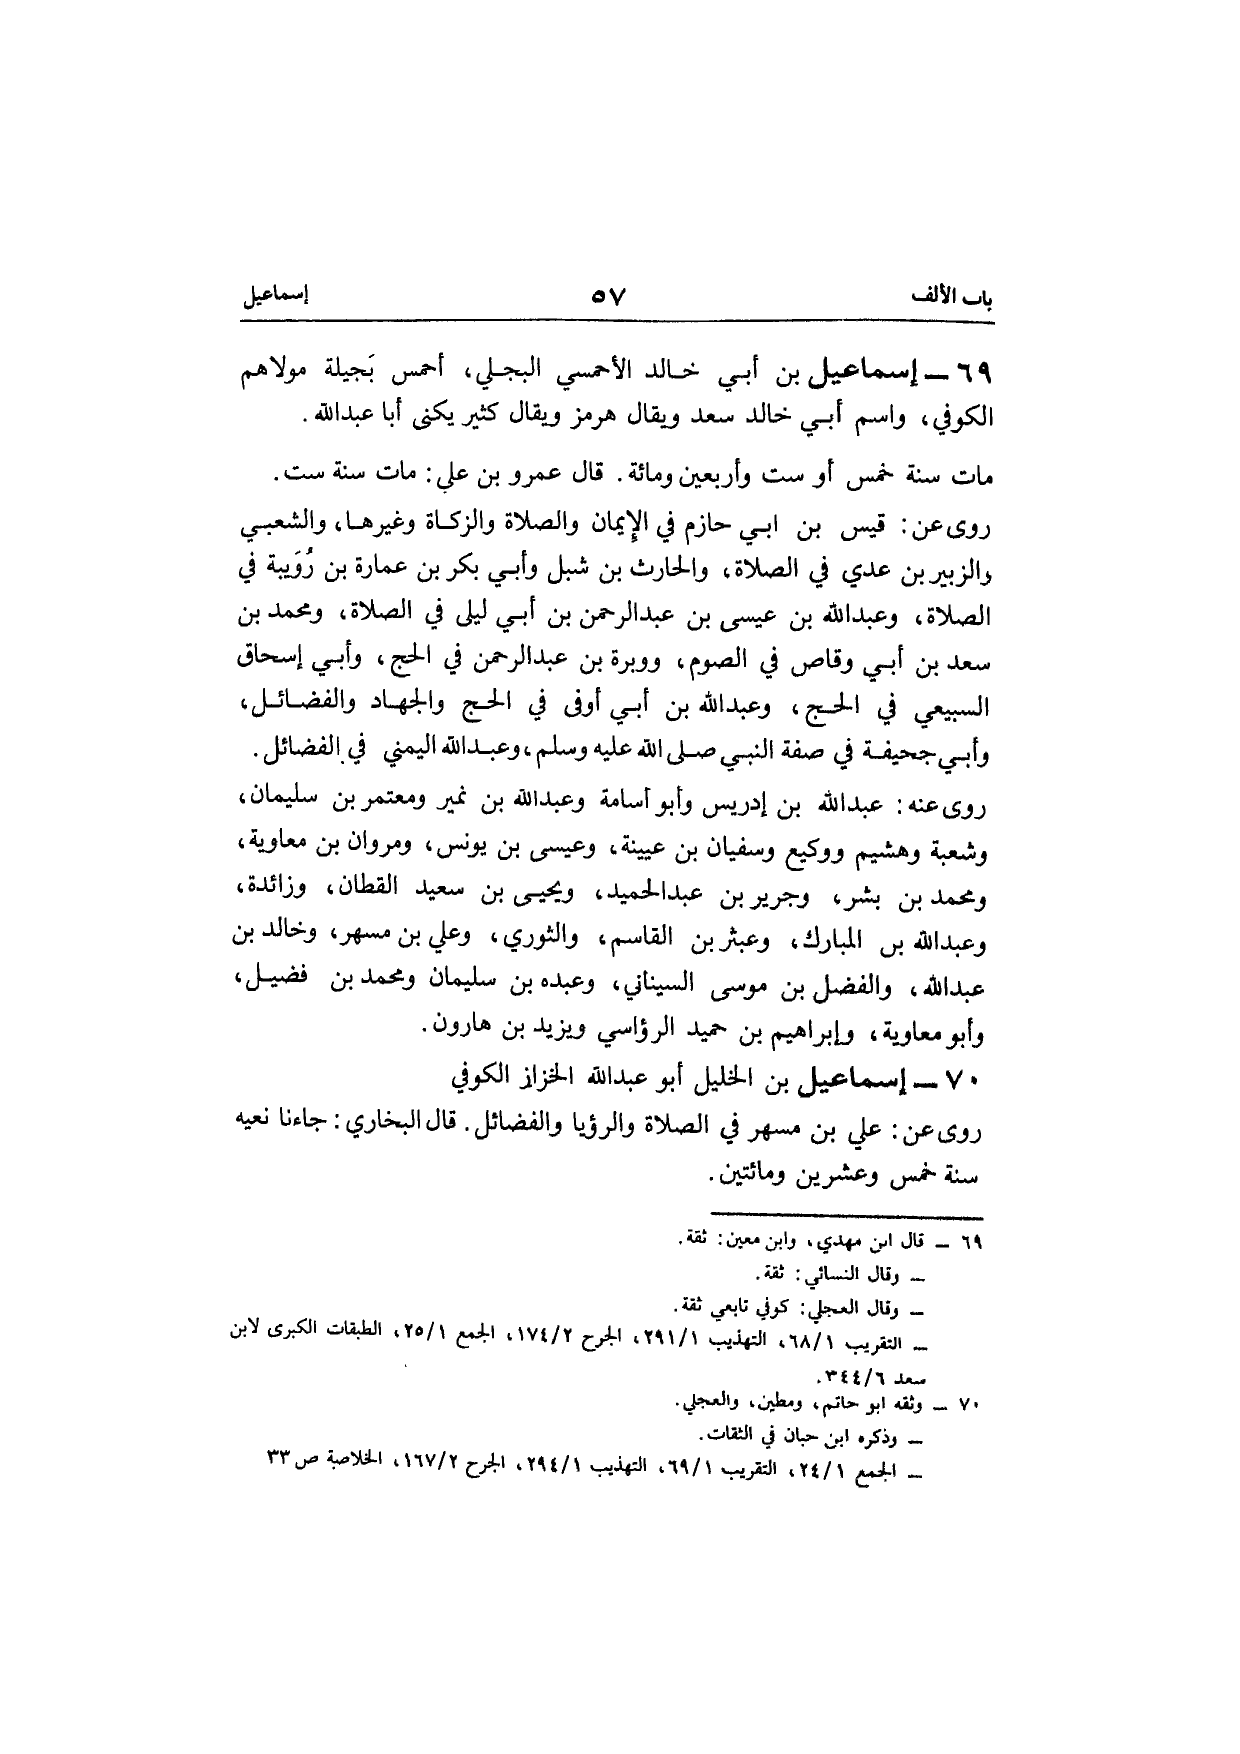 باب الألف ٥٧ إسماعيل
٦٩ ــ إسماعيل بن أبي خالد الأحمسي البجلي، أحمس بَجيلة مولاهم
الكوفي، واسم أبي خالد سعد ويقال هرمز ويقال كثير يكنى أبا عبدالله.
مات سنة خمس أو ست وأربعين ومائة. قال عمرو بن علي: مات سنة ست.
روى عن: قيس بن ابي حازم في الإيمان والصلاة والزكاة وغيرها، والشعبي
والزبير بن عدي في الصلاة، والحارث بن شبل وأبي بكر بن عمارة بن رُوَيبة في
الصلاة، وعبدالله بن عيسى بن عبدالرحمن بن أبي ليلى في الصلاة، ومحمد بن
سعد بن أبي وقاص في الصوم، ووبرة بن عبدالرحمن في الحج، وأبي إسحاق
السبيعي في الحج، وعبدالله بن أبي أوفى في الحج والجهاد والفضائل،
وأبي جحيفة في صفة النبي صلى الله عليه وسلم، وعبدالله اليمني في الفضائل.
روى عنه: عبدالله بن إدريس وأبو أسامة وعبدالله بن نمير ومعتمر بن سليمان،
وشعبة وهشيم ووكيع وسفيان بن عيينة، وعيسى بن يونس، ومروان بن معاوية،
ومحمد بن بشر، وجرير بن عبدالحميد، ويحيى بن سعيد القطان، وزائدة،
وعبدالله بن المبارك، وعبثر بن القاسم، والثوري، وعلي بن مسهر، وخالد بن
عبدالله، والفضل بن موسى السيناني، وعبده بن سليمان ومحمد بن فضيل،
وأبو معاوية، وإبراهيم بن حميد الرؤاسي ويزيد بن هارون.
٧٠ ــ إسماعيل بن الخليل أبو عبدالله الخزاز الكوفي
روى عن: علي بن مسهر في الصلاة والرؤيا والفضائل. قال البخاري: جاءنا نعيه
سنة خمس وعشرين ومائتين.
٦٩ ــ قال ابن مهدي، وابن معين: ثقة.
ــ وقال النسائي: ثقة.
ــ وقال العجلي: كوفي تابعي ثقة.
ــ التقريب ٦٨/١، التهذيب ٢٩١/١، الجرح ١٧٤/٢، الجمع ٢٥/١، الطبقات الكبرى لابن
سعد ٣٤٤/٦.
٧٠ ــ وثقه ابو حاتم، ومطين، والعجلي.
ــ وذكره ابن حبان في الثقات.
ــ الجمع ٢٤/١، التقريب ٦٩/١، التهذيب ٢٩٤/١، الجرح ١٦٧/٢، الخلاصة ص ٣٣